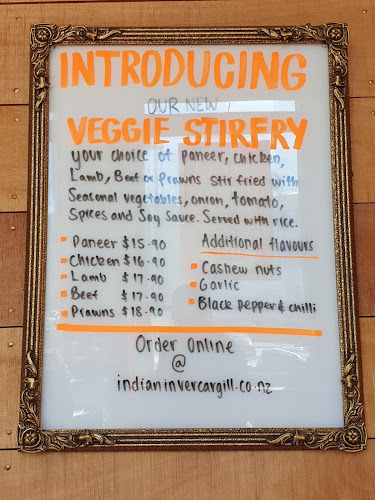 INTRODUCING
OUR NEW
VEGGIE STIRFRY
your choice of paneer, chicken,
Lamb, Beef or Prawns stir fried with
Seasonal vegetables, onion, tomato,
Spices and Soy Sauce. Served with rice.
Paneer $15.90
Chicken $16.90
Lamb $17.90
Beef $17.90
Prawns $18.90
Additional flavours
Cashew nuts
Garlic
Black Pepper & chilli
Order Online
@
indianinvercargill.co.nz